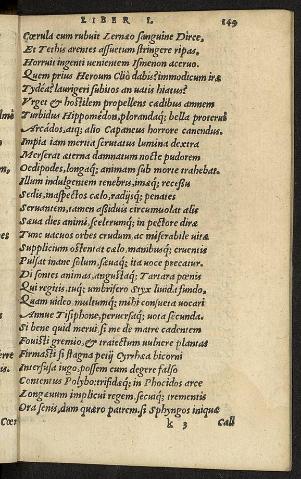 LIBER I. 149
Cœrula cum rubuit Lernæo sanguine Dirce,
Et Tethis arentes assuetum stringere ripas,
Horruit ingenti uenientem Ismenon aceruo.
Quem prius Heroum Clio dabis? immodicum iræ
Tydea? laurigeri subitos an uatis hiatus?
Vrget & hostilem propellens cædibus amnem
Turbidus Hippomedon, plorandaq; bella proterui
Arcados, atq; alio Capaneus horrore canendus.
Impia iam merita scrutatus lumina dextra
Merserat æterna damnatum nocte pudorem
Oedipodes, longaq; animam sub morte trahebat.
Illum indulgentem tenebris, imæq; recessu
Sedis, inaspectos cælo, radijsq; penates
Seruantem, tamen assiduis circumuolat alis
Sæua dies animi, scelerumq; in pectore diræ
Tunc uacuos orbes crudum, ac miserabile uitæ
Supplicium ostentat cælo, manibusq; cruentis
Pulsat inane solum, sæuaq; ita uoce precatur.
Di sontes animas, angustaq; Tartara pœnis
Qui regitis, tuq; umbrifero Styx liuida fundo,
Quam uideo multumq; mihi consueta uocari
Annue Tisiphone, peruersaq; uota secunda.
Si bene quid merui, si me de matre cadentem
Fouisti gremio, & traiectum uulnere plantas
Firmasti si stagna petij Cyrrhæa bicorni
Interfusa iugo, possem cum degere falso
Contentus Polybo: trifidæq; in Phocidos arce
Longæuum implicui regem, secuiq; trementis
Ora senis, dum quæro patrem. si Sphyngos iniquæ
k 3 Call